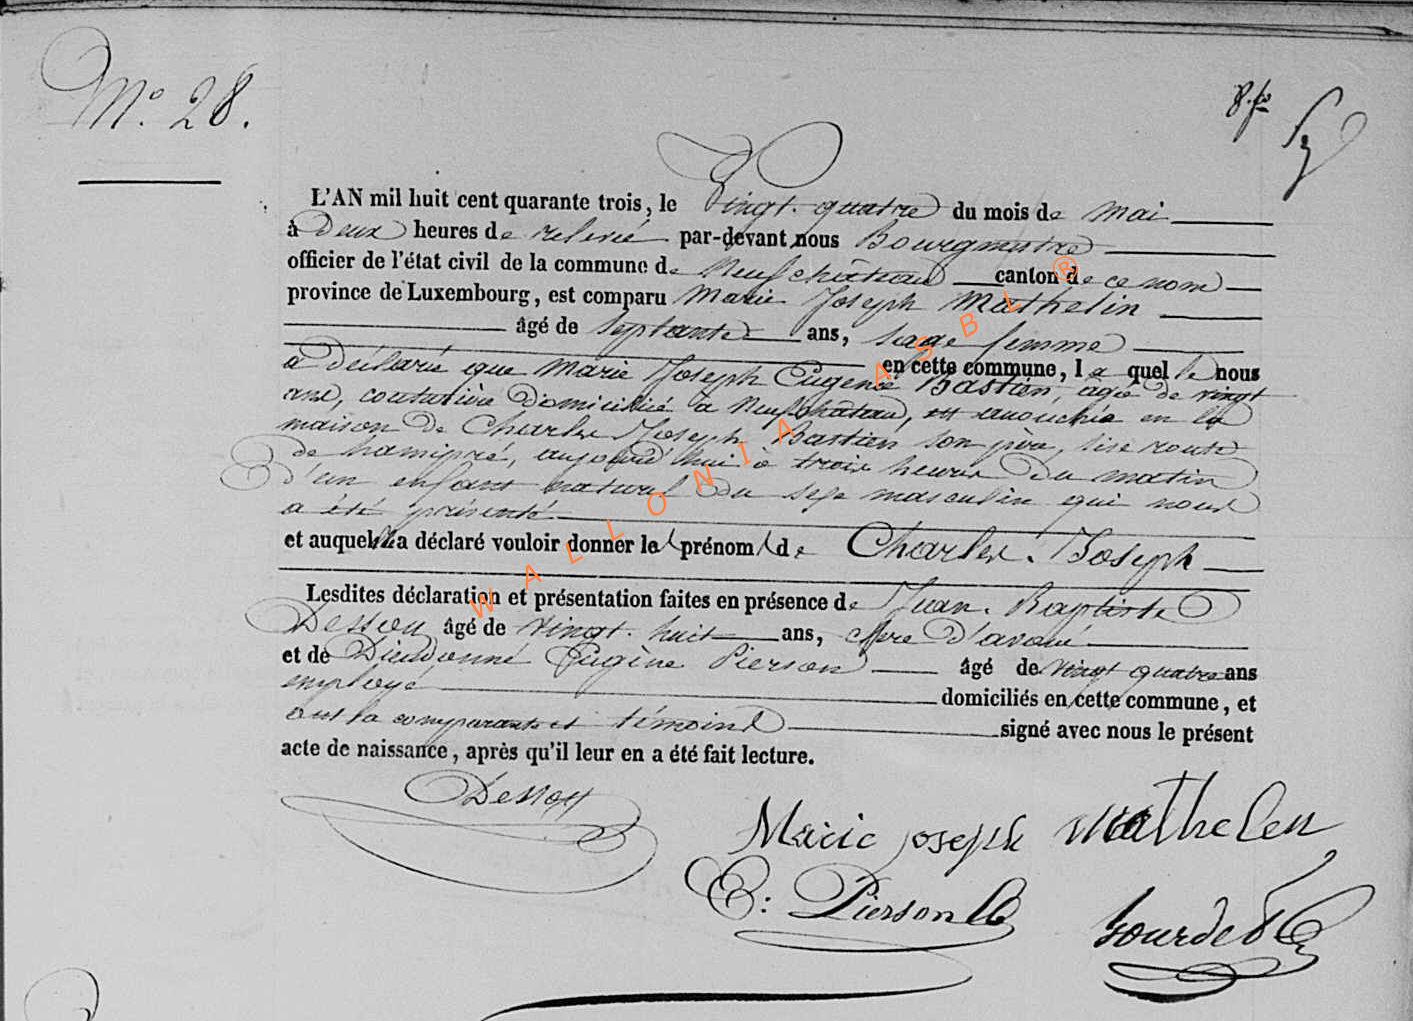 N.° 28.
8. fo
L'AN mil huit cent quarante trois, le Vingt-quatre du mois de Mai
à Deux heures de relevée par-devant nous Bourgmestre
officier de l'état civil de la commune de Neufchâteau canton de ce nom
province de Luxembourg, est comparu Marie Joseph Mathelin
âgé de Septante ans, sage femme
en cette commune, la quelle nous
a déclaré que Marie Joseph Eugenie Bastien, agée de vingt
ans, couturière domiciliée à Neufchâteau, est accouchée en la
maison de Charles Joseph Bastien son père, sise route
de hamipré, aujourd'hui à trois heures du matin
D'un enfant naturel du sexe masculin qui nous
a été présenté
et auquel elle a déclaré vouloir donner le prénom de Charles-Joseph
Lesdites déclaration et présentation faites en présence de Jean-Baptiste
Dessoy âgé de vingt-huit ans, clerc d'avoué
et de Dieudonné Eugène Pierson âgé de vingt quatre ans
employé domiciliés en cette commune, et
ont la comparante et témoins signé avec nous le présent
acte de naissance, après qu'il leur en a été fait lecture.
Dessoy
Marie joseph Mathelen
E: Pierson
WALLONIA ASBL ®